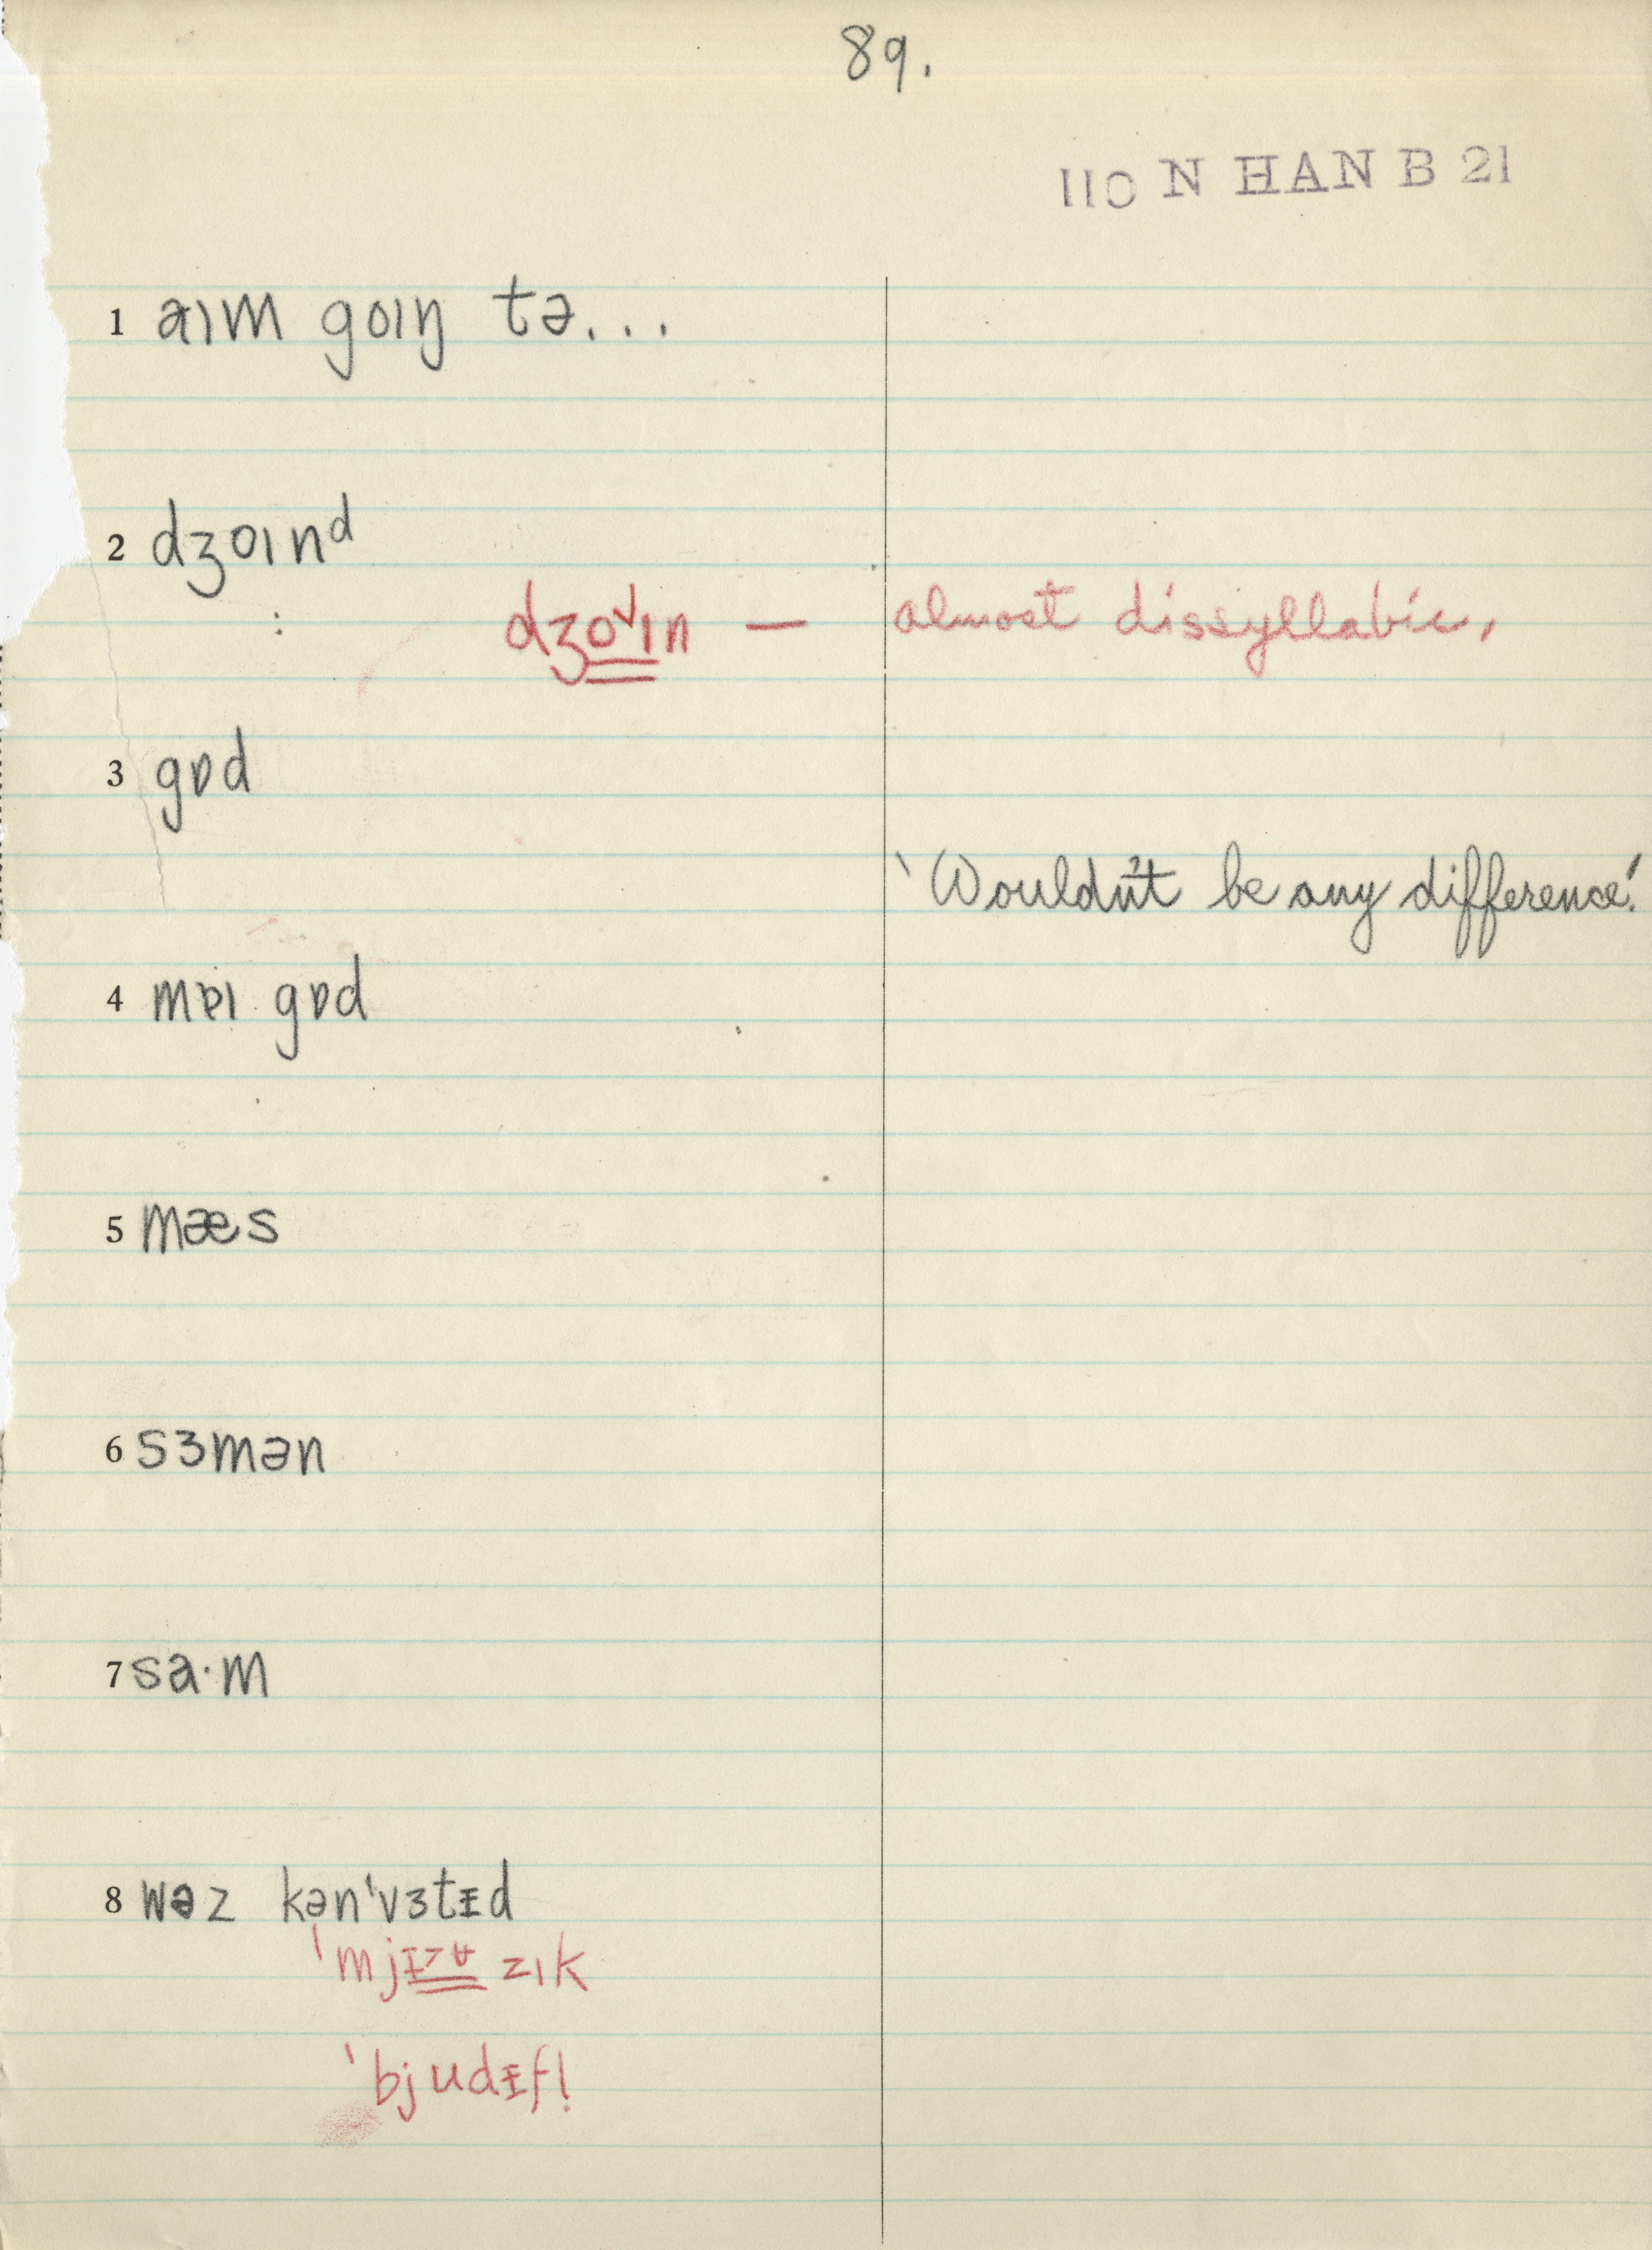 89.
110 N HAN B 21
1 aɪm goɪŋ tə...
2 dʒoɪnᵈ
dʒo˅ɪn — almost dissyllabic,
3 gɒd
'Wouldn't be any difference.'
4 mɐɪ gɒd
5 mæs
6 sɜmən
7 sa·m
8 wəz kən'vɜtᵻd
'mjᵻ>ʉ zɪk
'bjudᵻfl̩